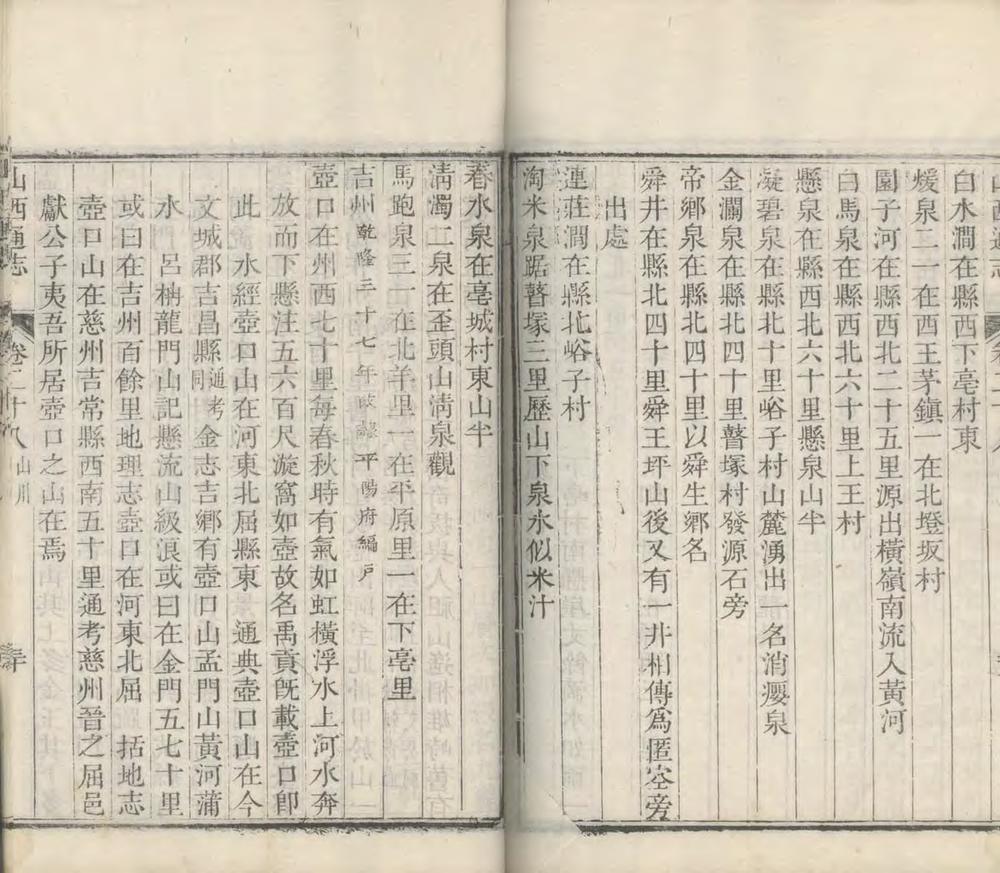 白水澗在縣西下亳村東
煖泉二一在西王茅鎮一在北墱坂村
園子河在縣西北二十五里源出橫嶺南流入黃河
白馬泉在縣西北六十里上王村
懸泉在縣西北六十里懸泉山半
凝碧泉在縣北十里峪子村山麓湧出一名消癭泉
金瀾泉在縣北四十里瞽塚村發源石旁
帝鄉泉在縣北四十里以舜生鄉名
舜井在縣北四十里舜王坪山後又有一井相傳爲匿空旁
出處
連莊澗在縣北峪子村
淘米泉踞瞽塚三里歷山下泉水似米汁
春水泉在亳城村東山半
淸濁二泉在歪頭山淸泉觀
馬跑泉三一在北羊里一在平原里一在下亳里
吉州乾隆三十七年改隸平陽府編戸
壺口在州西七十里每春秋時有氣如虹橫浮水上河水奔
放而下懸注五六百尺漩窩如壺故名禹貢旣載壺口卽
此 水經壺口山在河東北屈縣東 通典壺口山在今
文城郡吉昌縣通考同 金志吉鄉有壺口山孟門山黃河蒲
水 呂柟龍門山記懸流山級浪或曰在金門五七十里
或曰在吉州百餘里地理志壺口在河東北屈 括地志
壺口山在慈州吉常縣西南五十里通考慈州晉之屈邑
獻公子夷吾所居壺口之山在焉
山西通志 卷二十八 山川 三十